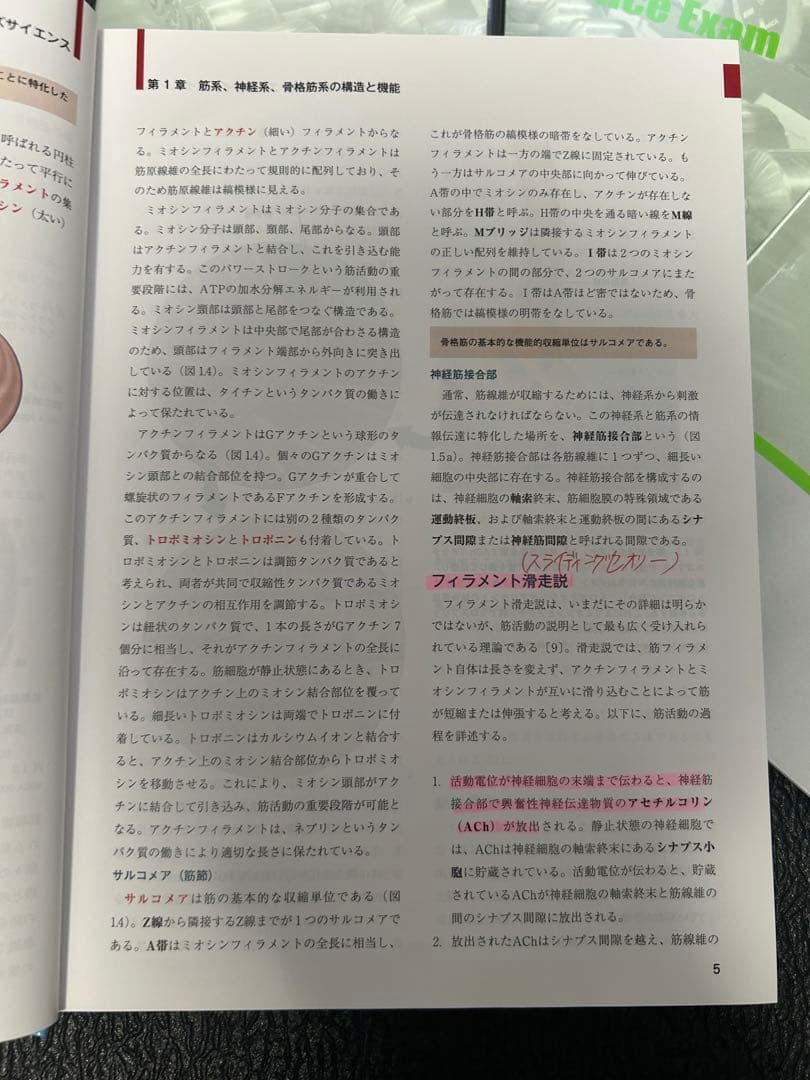 ズサイエンス
ことに特化した
呼ばれる円柱
たって平行に
ラメントの集
シン（太い）
ce Exam
第1章 筋系、神経系、骨格筋系の構造と機能
フィラメントとアクチン（細い）フィラメントからな
る。ミオシンフィラメントとアクチンフィラメントは
筋原線維の全長にわたって規則的に配列しており、そ
のため筋原線維は縞模様に見える。
ミオシンフィラメントはミオシン分子の集合であ
る。ミオシン分子は頭部、頸部、尾部からなる。頭部
はアクチンフィラメントと結合し、これを引き込む能
力を有する。このパワーストロークという筋活動の重
要段階には、ATPの加水分解エネルギーが利用され
る。ミオシン頸部は頭部と尾部をつなぐ構造である。
ミオシンフィラメントは中央部で尾部が合わさる構造
のため、頭部はフィラメント端部から外向きに突き出
している（図1.4）。ミオシンフィラメントのアクチン
に対する位置は、タイチンというタンパク質の働きに
よって保たれている。
アクチンフィラメントはGアクチンという球形のタ
ンパク質からなる（図1.4）。個々のGアクチンはミオ
シン頭部との結合部位を持つ。Gアクチンが重合して
螺旋状のフィラメントであるFアクチンを形成する。
このアクチンフィラメントには別の2種類のタンパク
質、トロポミオシンとトロポニンも付着している。ト
ロポミオシンとトロポニンは調節タンパク質であると
考えられ、両者が共同で収縮性タンパク質であるミオ
シンとアクチンの相互作用を調節する。トロポミオシ
ンは紐状のタンパク質で、1本の長さがGアクチン7
個分に相当し、それがアクチンフィラメントの全長に
沿って存在する。筋細胞が静止状態にあるとき、トロ
ポミオシンはアクチン上のミオシン結合部位を覆って
いる。細長いトロポミオシンは両端でトロポニンに付
着している。トロポニンはカルシウムイオンと結合す
ると、アクチン上のミオシン結合部位からトロポミオ
シンを移動させる。これにより、ミオシン頭部がアク
チンに結合して引き込み、筋活動の重要段階が可能と
なる。アクチンフィラメントは、ネブリンというタン
パク質の働きにより適切な長さに保たれている。
サルコメア（筋節）
サルコメアは筋の基本的な収縮単位である（図
1.4）。Z線から隣接するZ線までが1つのサルコメアで
ある。A帯はミオシンフィラメントの全長に相当し、
これが骨格筋の縞模様の暗帯をなしている。アクチン
フィラメントは一方の端でZ線に固定されている。も
う一方はサルコメアの中央部に向かって伸びている。
A帯の中でミオシンのみ存在し、アクチンが存在しな
い部分をH帯と呼ぶ。H帯の中央を通る暗い線をM線
と呼ぶ。Mブリッジは隣接するミオシンフィラメント
の正しい配列を維持している。I帯は2つのミオシン
フィラメントの間の部分で、2つのサルコメアにまた
がって存在する。I帯はA帯ほど密ではないため、骨
格筋では縞模様の明帯をなしている。
骨格筋の基本的な機能的収縮単位はサルコメアである。
神経筋接合部
通常、筋線維が収縮するためには、神経系から刺激
が伝達されなければならない。この神経系と筋系の情
報伝達に特化した場所を、神経筋接合部という（図
1.5a）。神経筋接合部は各筋線維に1つずつ、細長い
細胞の中央部に存在する。神経筋接合部を構成するの
は、神経細胞の軸索終末、筋細胞膜の特殊領域である
運動終板、および軸索終末と運動終板の間にあるシナ
プス間隙または神経筋間隙と呼ばれる間隙である。
（スライディングセオリー）
フィラメント滑走説
フィラメント滑走説は、いまだにその詳細は明らか
ではないが、筋活動の説明として最も広く受け入れら
れている理論である［9］。滑走説では、筋フィラメ
ント自体は長さを変えず、アクチンフィラメントとミ
オシンフィラメントが互いに滑り込むことによって筋
が短縮または伸張すると考える。以下に、筋活動の過
程を詳述する。
1. 活動電位が神経細胞の末端まで伝わると、神経筋
接合部で興奮性神経伝達物質のアセチルコリン
（ACh）が放出される。静止状態の神経細胞で
は、AChは神経細胞の軸索終末にあるシナプス小
胞に貯蔵されている。活動電位が伝わると、貯蔵
されているAChが神経細胞の軸索終末と筋線維の
間のシナプス間隙に放出される。
2. 放出されたAChはシナプス間隙を越え、筋線維の
5